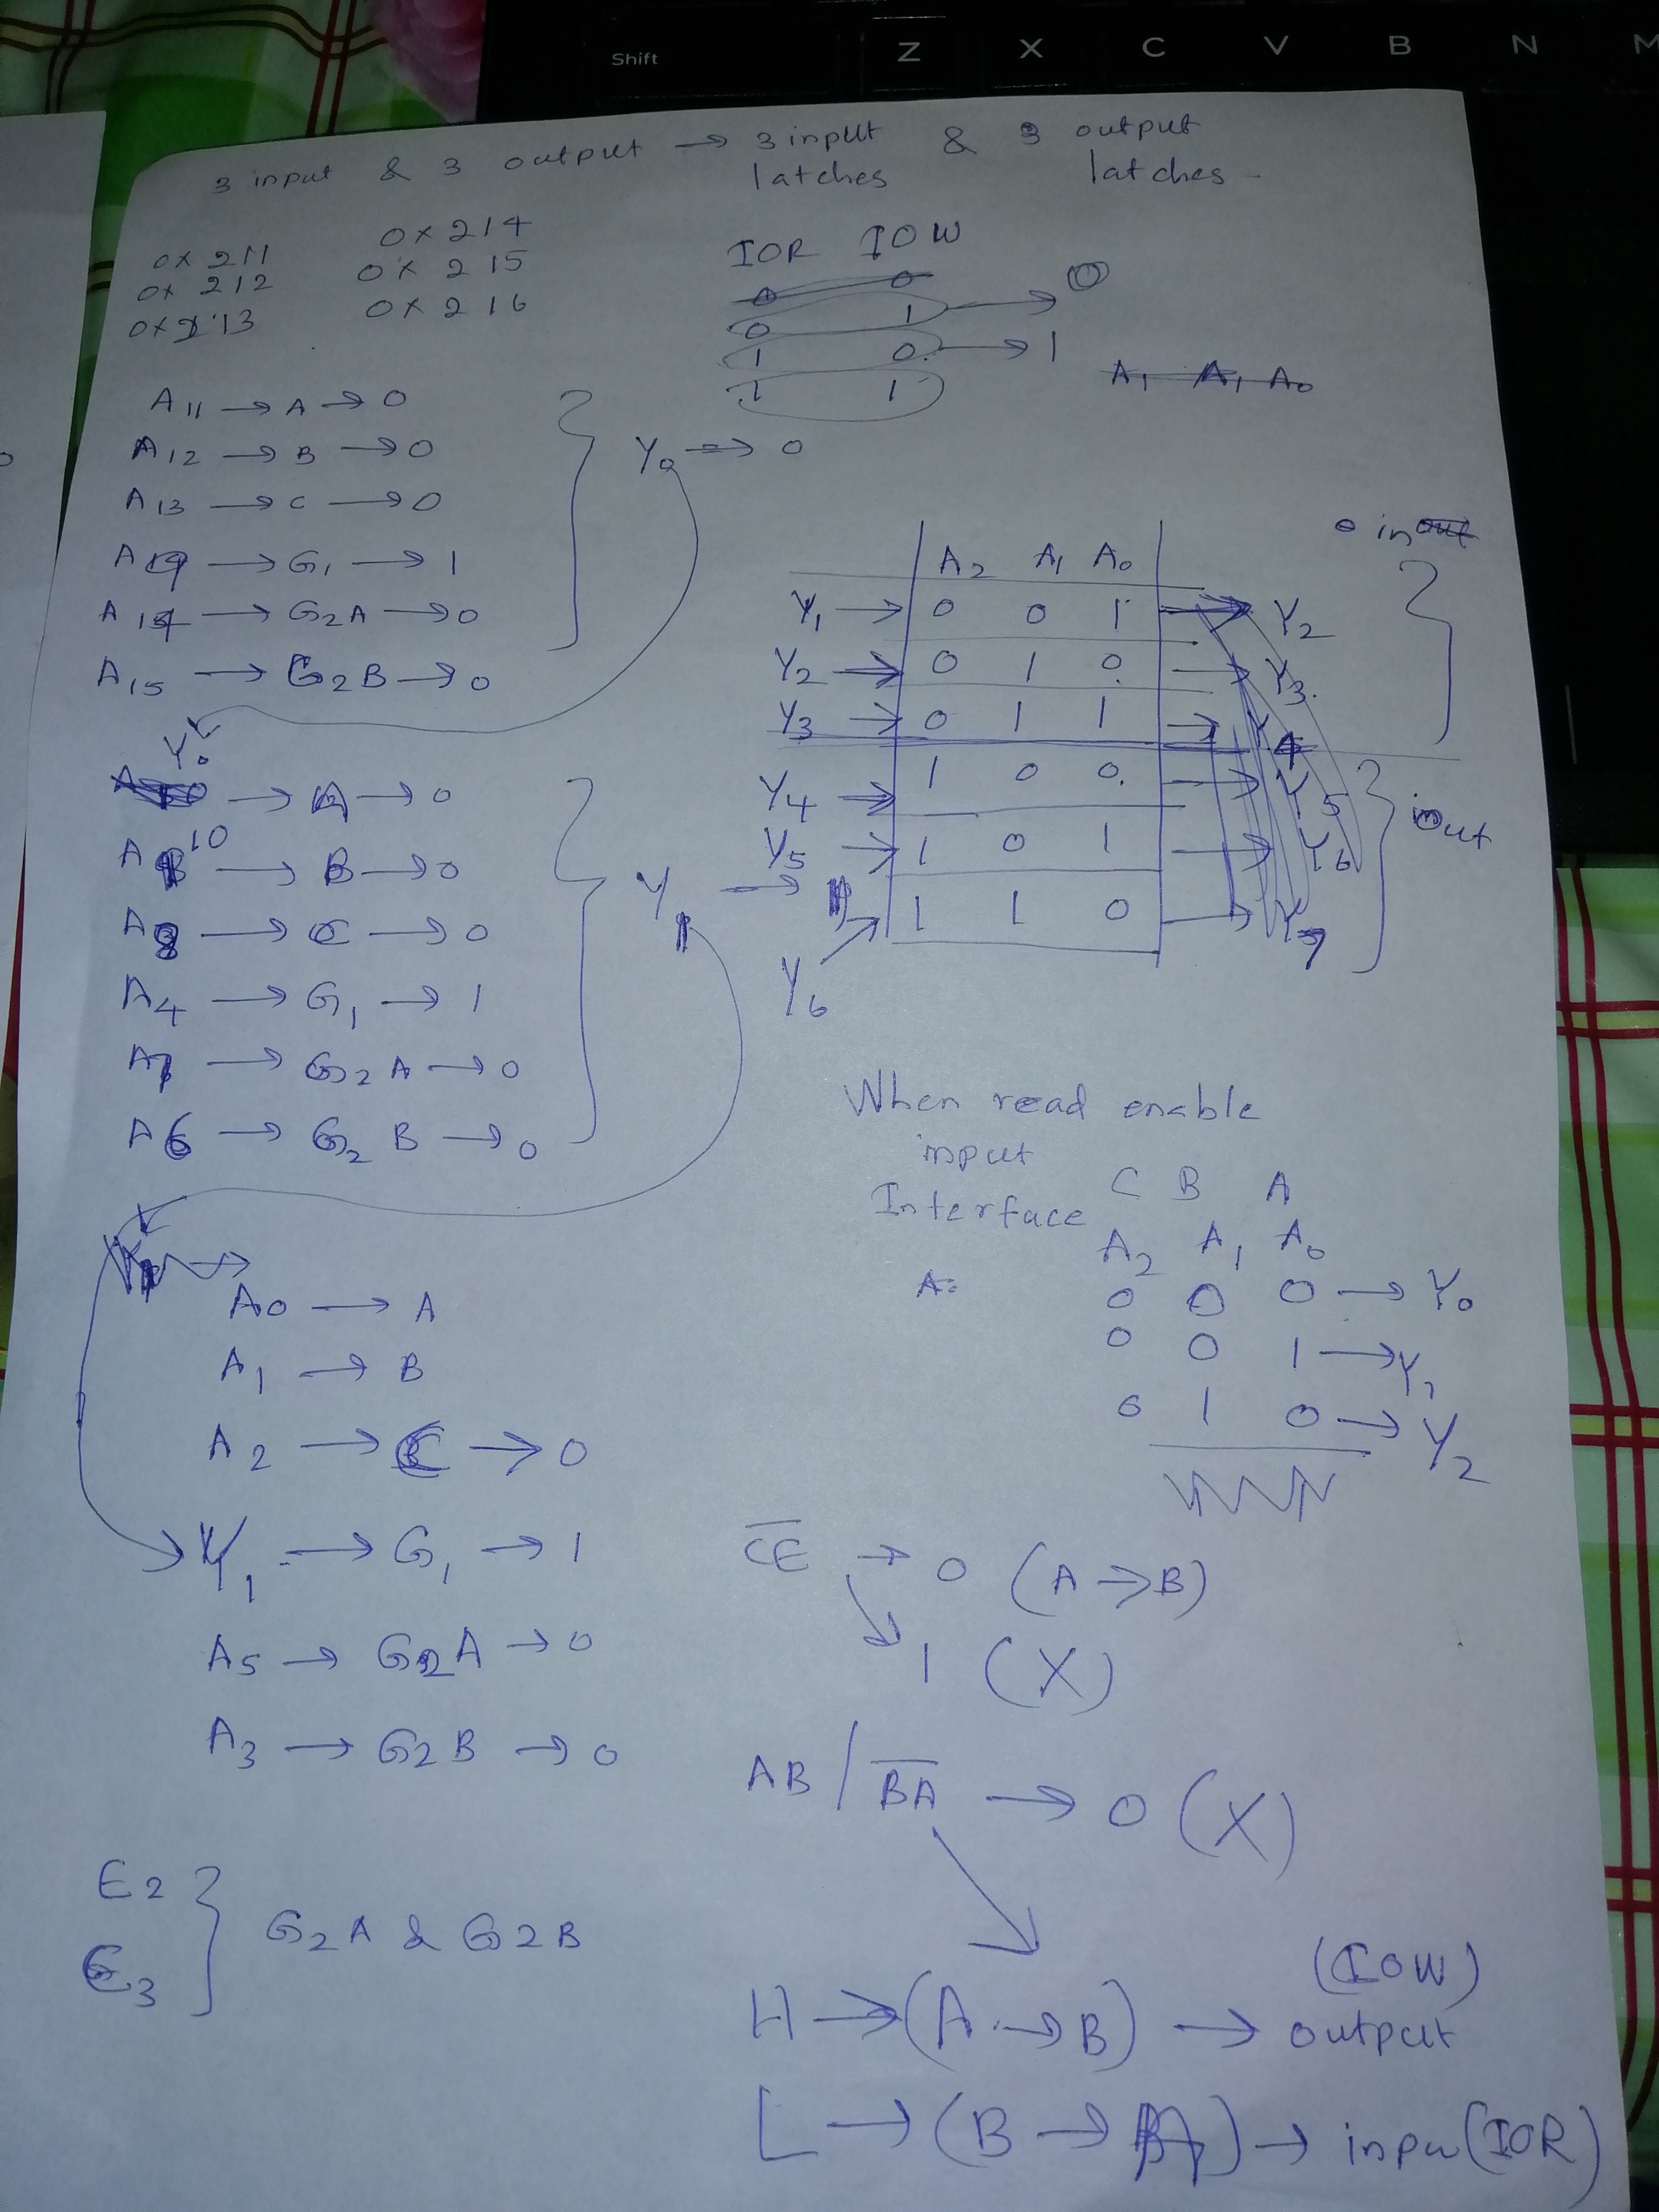 Shift Z X C V B N M
3 input & 3 output → 3 input & 3 output
latches latches
0x 211 0x 214
0x 212 0x 215
0x213 0x 216
IOR IOW
0 0
0 1 → 0
1 0 → 1
1 1
A1 A1 A0
A11 → A → 0
A12 → B → 0
A13 → C → 0
A9 → G1 → 1
A14 → G2A → 0
A15 → G2B → 0
Y0 => 0
Y0
→ A → 0
A10 → B → 0
A8 → C → 0
A4 → G1 → 1
A7 → G2A → 0
A6 → G2B → 0
Y1 →
A0 → A
A1 → B
A2 → C → 0
Y1 → G1 → 1
A5 → G2A → 0
A3 → G2B → 0
E2
E3
G2A & G2B
0 in out
A2 A1 A0
Y1 → 0 0 1 → Y2
Y2 → 0 1 0 → Y3
Y3 → 0 1 1 → Y4
Y4 → 1 0 0 → Y5
Y5 → 1 0 1 → Y6
Y6 → 1 1 0 → Y7
out
When read enable
input
Interface
C B A
A2 A1 A0
A=
0 0 0 → Y0
0 0 1 → Y1
0 1 0 → Y2
C̅E̅ → 0 (A → B)
1 (X)
AB/B̅A̅ → 0 (X)
(IOW)
H → (A → B) → output
L → (B → A) → inpu (IOR)